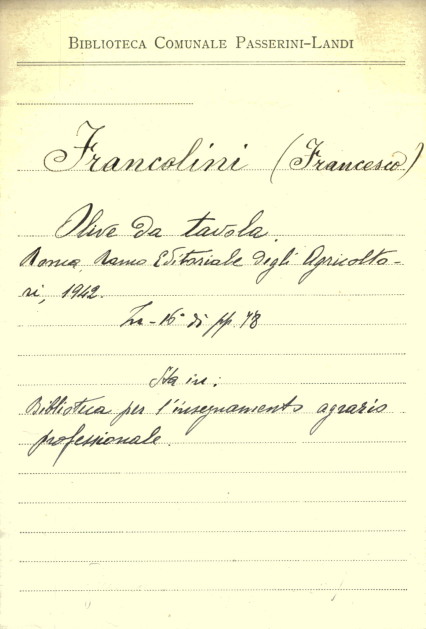 BIBLIOTECA COMUNALE PASSERINI-LANDI
Francolini (Francesco)
Olive da tavola.
Roma, Ramo Editoriale degli Agricolto-
ri, 1942.
In-16° di pp. 78
Sta in:
Biblioteca per l'insegnamento agrario
professionale.